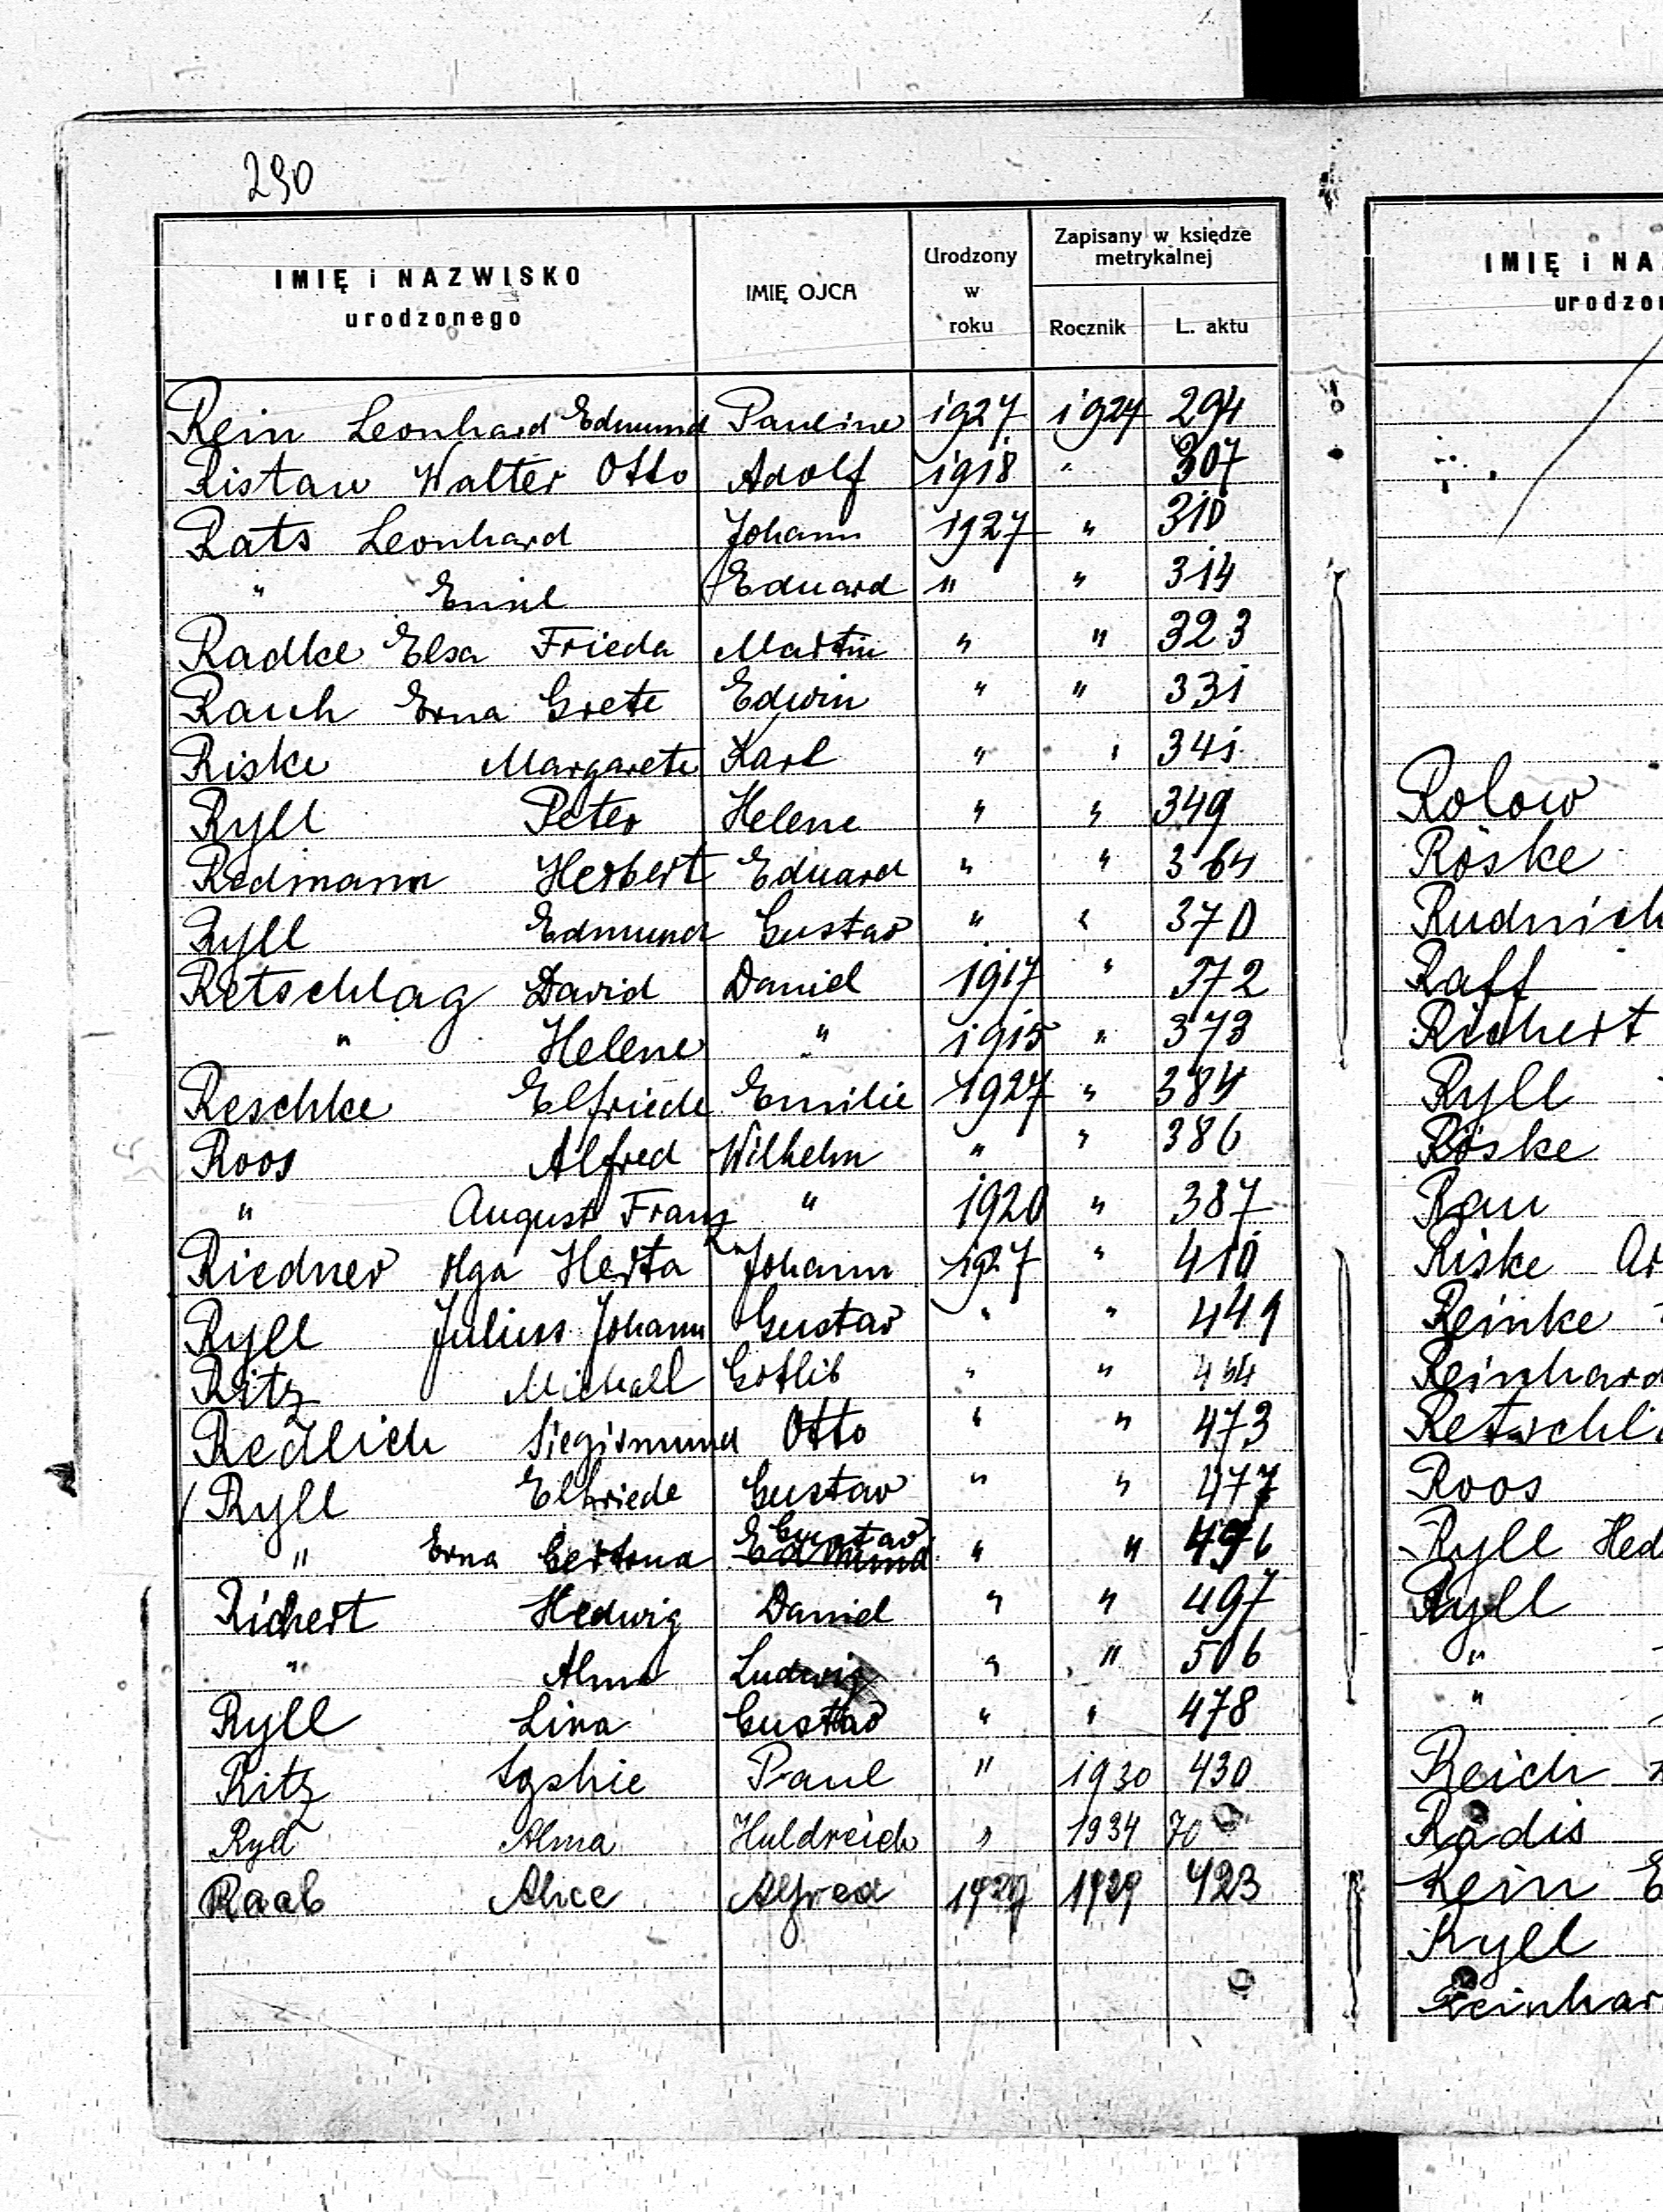 290
IMIĘ i NAZWISKO urodzonego | IMIĘ OJCA | Urodzony w roku | Zapisany w księdze metrykalnej | Rocznik | L. aktu
Rein Leonhard Edmund Pauline 1927 1927 294
Ristau Walter Otto Adolf 1918 " 307
Rats Leonhard Johann 1927 " 310
" Emil Eduard " " 314
Radke Elsa Frieda Martin " " 323
Rauch Erna Grete Edwin " " 331
Riske Margarete Karl " " 341
Ryll Peter Helene " " 349
Redmann Herbert Eduard " " 364
Ryll Edmund Gustav " " 370
Retschlag David Daniel 1917 " 372
" Helene " 1915 " 373
Reschke Elfriede Emilie 1927 " 384
Roos Alfred Wilhelm " " 386
" August Franz " 1920 " 387
Riedner Olga Herta Johann 1927 " 410
Ryll Julius Johann Gustav " " 449
Ritz Michael Gotlib " " 454
Redlich Siegismund Otto " " 473
Ryll Elfriede Gustav " " 477
" Erna Gertrud Edmund Gustav " " 496
Richert Hedwig Daniel " " 497
" Alma Ludwig " " 506
Ryll Lina Gustav " " 478
Ritz Paul " 1930 430
Ryll Alma Huldreich " 1934 70
Raab Alice Alfred 1929 1929 423
IMIĘ i NA
urodzo
Rolow
Röske
Rudnich
Raff
Richert
Ryll
Röske
Rau
Riske Ar
Reinke
Reinhard
Retschl
Roos
Ryll Hed
Ryll
"
"
Reich
Radis
Rein E
Ryll
Reinhar